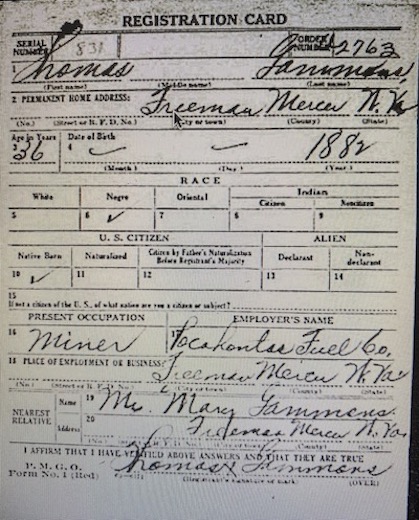 REGISTRATION CARD
SERIAL NUMBER 831 ORDER NUMBER 2763
1 Thomas Sammons
(First name) (Middle name) (Last name)
2 PERMANENT HOME ADDRESS: Freeman Mercer W. Va
(No.) (Street or R. F. D. No.) (City or town) (County) (State)
Age in Years Date of Birth
3 36 4 — — 1882
(Month) (Day) (Year)
RACE
White Negro Oriental Indian
Citizen Noncitizen
5 6 ✓ 7 8 9
U. S. CITIZEN ALIEN
Native Born Naturalized Citizen by Father's Naturalization Before Registrant's Majority Declarant Non-declarant
10 ✓ 11 12 13 14
15
If not a citizen of the U. S., of what nation are you a citizen or subject?
PRESENT OCCUPATION EMPLOYER'S NAME
16 Miner 17 Pocahontas Fuel Co.
18 PLACE OF EMPLOYMENT OR BUSINESS: Freeman Mercer W. Va
(No.) (Street or R. F. D. No.) (City or town) (County) (State)
NEAREST RELATIVE Name 19 Mrs. Mary Sammons
Address 20 Freeman Mercer W. Va
(No.) (County) (State)
I AFFIRM THAT I HAVE VERIFIED ABOVE ANSWERS AND THAT THEY ARE TRUE
P. M. G. O.
Form No. 1 (Red) Thomas X Sammons
(Registrant's signature or mark) (OVER)